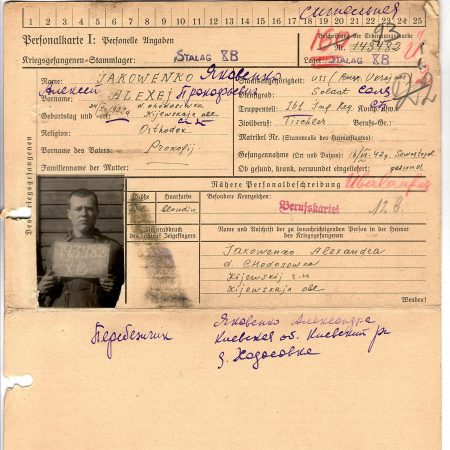 1 2 3 4 5 6 7 8 9 10 11 12 13 14 15 16 17 18 19 20 21 22 23 24 25
Personalkarte I: Personelle Angaben
Kriegsgefangenen-Stammlager: STALAG XB
Beschriftung der Erkennungsmarke
Nr. 143982
Lager: STALAG XB
Des Kriegsgefangenen
Name: JAKOWENKO Яковенко
Vorname: ALEXEJ Алексей Прокофьевич
Geburtstag und -ort:
Kijewskaja obl.
Religion: Orthodox
Vorname des Vaters: Prokofij
Familienname der Mutter:
Staatsangehörigkeit:
Dienstgrad: Soldat солд
Truppenteil: 161 Inf. Reg. Komp. usw.:
Zivilberuf: Tischler Berufs-Gr.:
Matrikel Nr. (Stammrolle des Heimatstaates):
Gefangennahme (Ort und Datum): Sewastopol
Ob gesund, krank, verwundet eingeliefert: gesund
Nähere Personalbeschreibung
Überläufer
Größe Haarfarbe Besondere Kennzeichen:
blondin
Berufskartei
Fingerabdruck
des rechten Zeigefingers
Name und Anschrift der zu benachrichtigenden Person in der Heimat
des Kriegsgefangenen
Jakowenko Alexandra
d. Chodosowka
Kijewskij r-n
Kijewskaja obl.
Wenden!
143982
XB
Перебежчик
Яковенко Александра
Киевская об. Киевский рн
д. Ходосовка